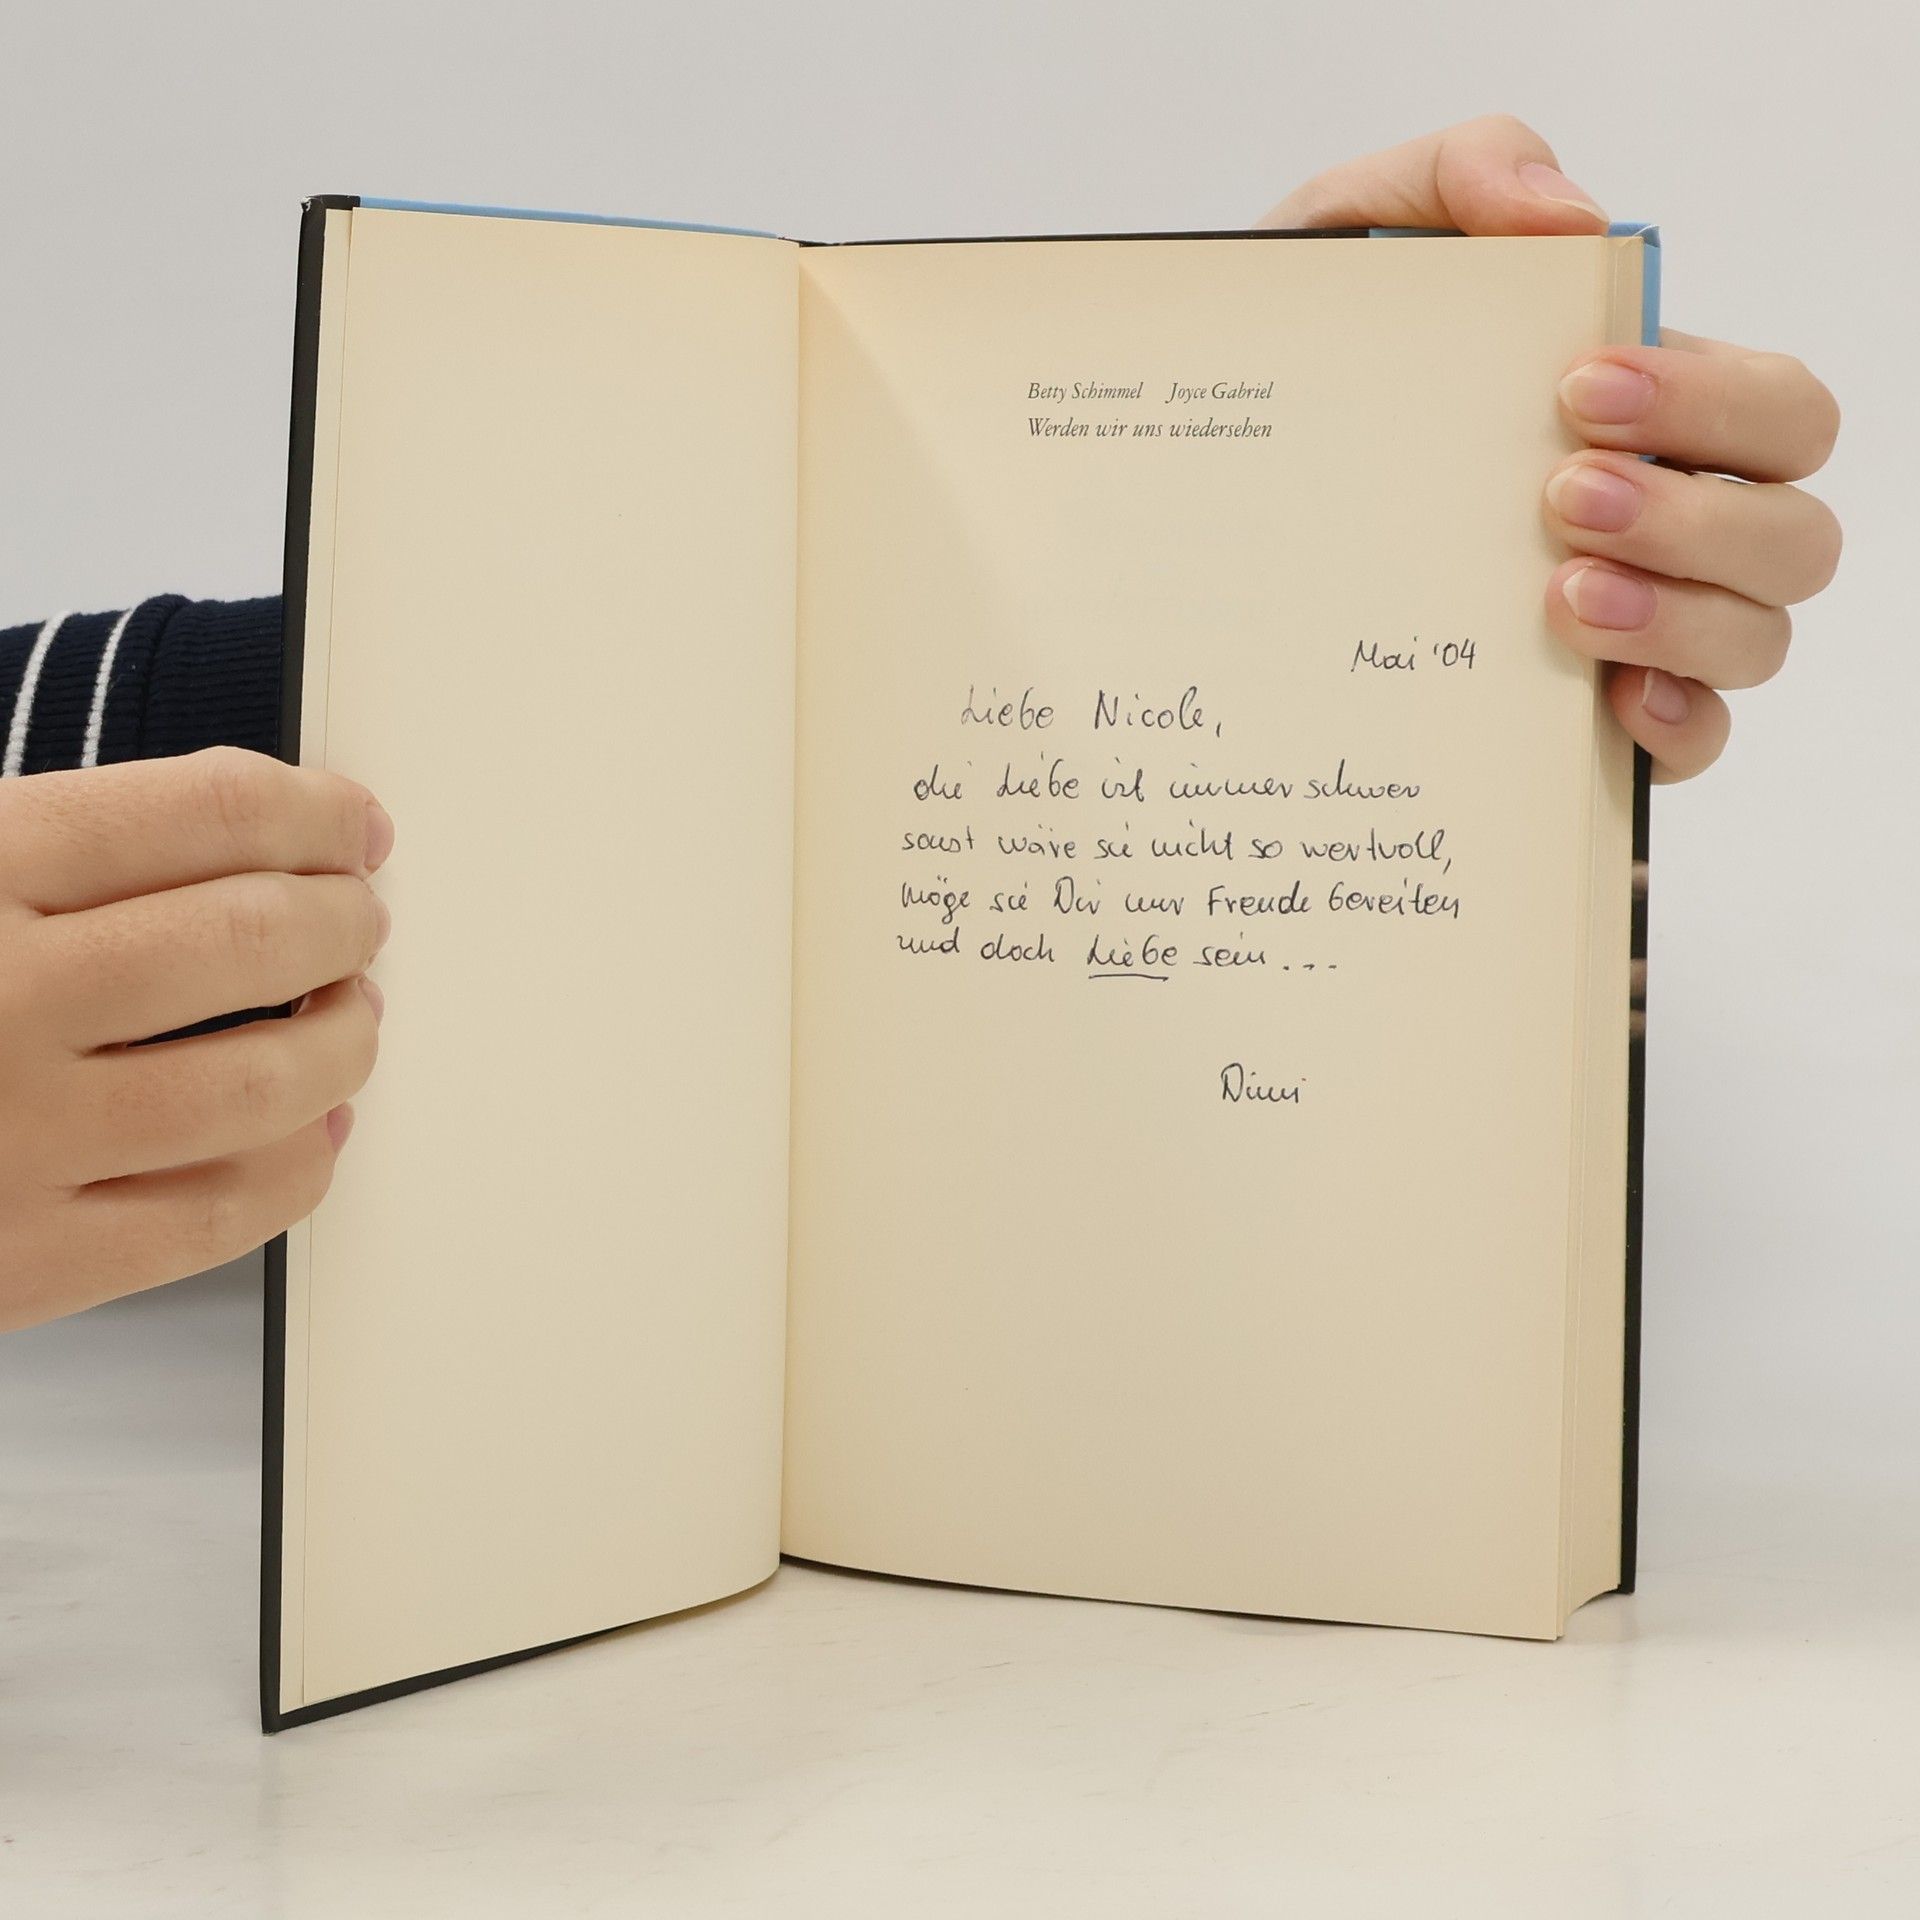 Betty Schimmel Joyce Gabriel
Werden wir uns wiedersehen
Mai '04
Liebe Nicole,
die Liebe ist immer schwer
sonst wäre sie nicht so wertvoll,
möge sie Dir nur Freude bereiten
und doch Liebe sein...
Dimi